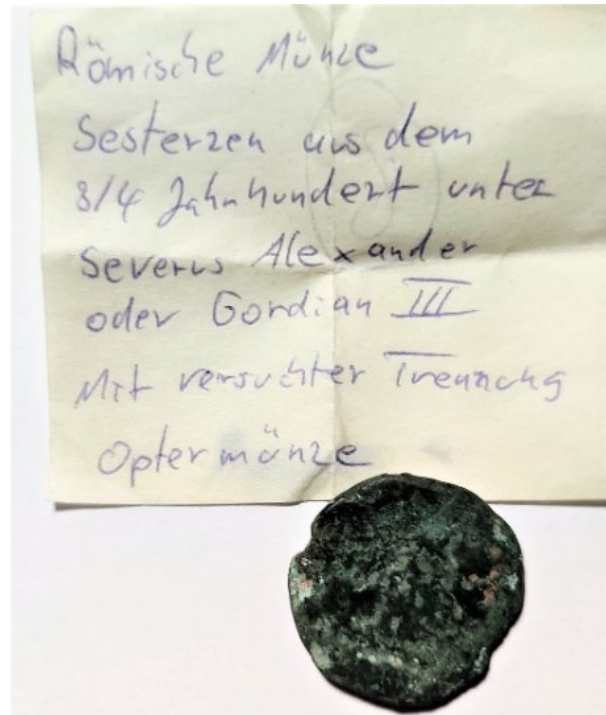 Römische Münze
Sesterzen aus dem
3/4 Jahrhundert unter
Severus Alexander
oder Gordian III
Mit versuchter Trennung
Opfermünze